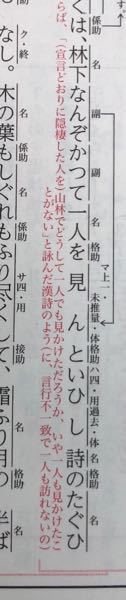 係助 名 副 副 名 格助 マ上一・未 推量・体 格助 ハ四・用 過去・体 名 格助 名
くは、林下なんぞかつて一人を見んといひし詩のたぐひ
らば、「(宣言どおりに隠棲した人を)山林でどうして一人でも見かけただろうか、いや一人も見かけたこ
とがない」と詠んだ漢詩のよう(に、言行不一致で一人も訪れないの)
ク・終 名 格助 名 係助 名 係助 サ四・用 接助 名 名
なし。木の葉もしぐれもふり尽くして、霜ふり月の半ば